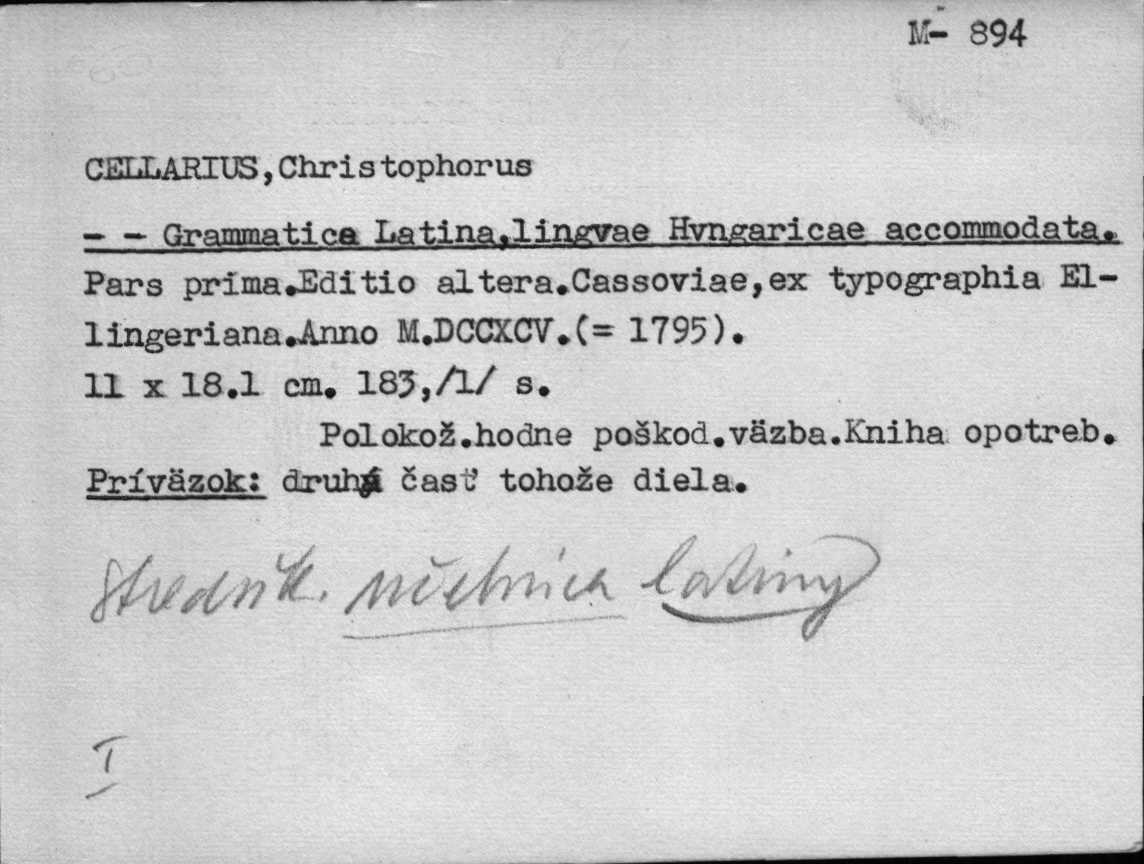 M- 894
CELLARIUS,Christophorus
- - Grammatica Latina,lingvae Hvngaricae accommodata.
Pars prima.Editio altera.Cassoviae,ex typographia El-
lingeriana.Anno M.DCCXCV.(= 1795).
11 x 18.1 cm. 183,/1/ s.
Polokož.hodne poškod.väzba.Kniha opotreb.
Príväzok: druhá časť tohože diela.
stredošk. učebnica latiny
I